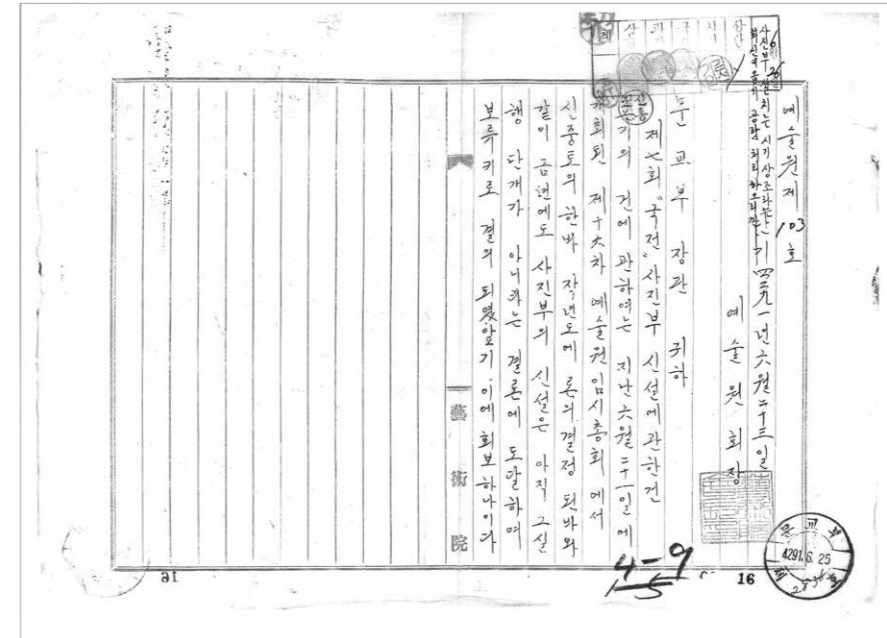 예술원제103호
사진부 설치는 시기상조라는
단기 四二九一년 六월 二十三일
예술원 회장
문교부 장관 귀하
제七회 "국전" 사진부 신설에 관한 건
의 건에 관하여는 지난 六월 二十一일에
개최된 제十六차 예술원 임시총회에서
신중토의한바 작년도에 론의결정 된바와
같이 금년에도 사진부의 신설은 아직 그 실
행 단계가 아니라는 결론에 도달하여
보류키로 결의 되였압기 이에 회보하나이다
藝術院
문교부
4291. 6. 25
4-9
15
16
16